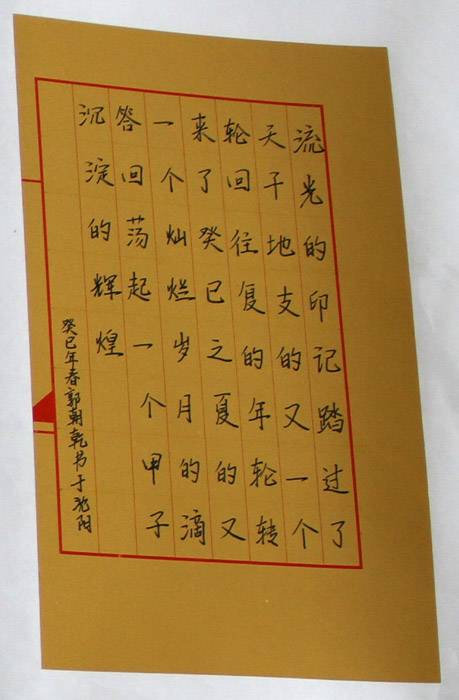 流光的印记踏过了
天干地支的又一个
轮回往复的年轮转
来了癸巳之夏的又
一个灿烂岁月的滴
答回荡起一个甲子
沉淀的辉煌
癸巳年春郭朝乾书于沈阳